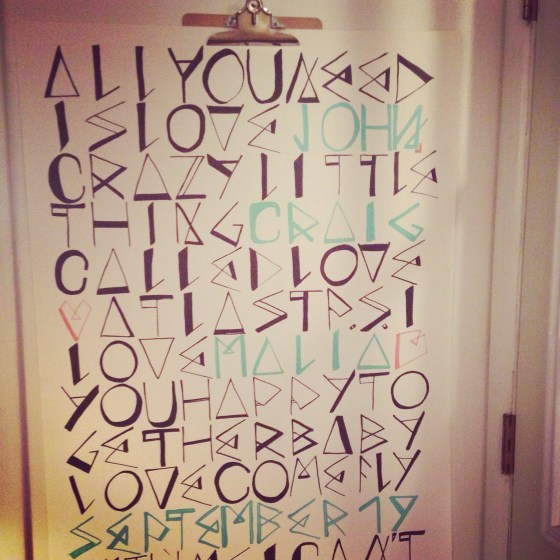 ALL YOU NEED
IS LOVE JOHN
CRAZY LITTLE
THING CRAIG
CALLED LOVE
♡ AT LAST P.S. I
LOVE MALIA
YOU HAPPY TO
GETHER BABY
LOVE COME FLY
SEPTEMBER 19
WITH ME I CAN'T